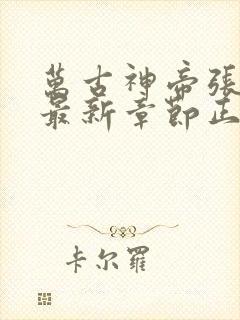 萬古神帝張
最新章節正
卡尔羅